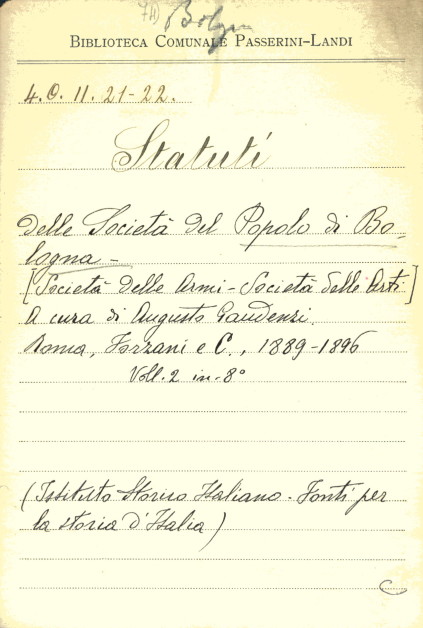 BIBLIOTECA COMUNALE PASSERINI-LANDI
4.O. 11. 21-22.
Statuti
delle Società del Popolo di Bo-
logna -
[Società delle Armi - Società delle Arti]
A cura di Augusto Gaudenzi.
Roma, Forzani e C., 1889-1896
Voll. 2 in-8°
(Istituto Storico Italiano - Fonti per
la storia d'Italia)
C